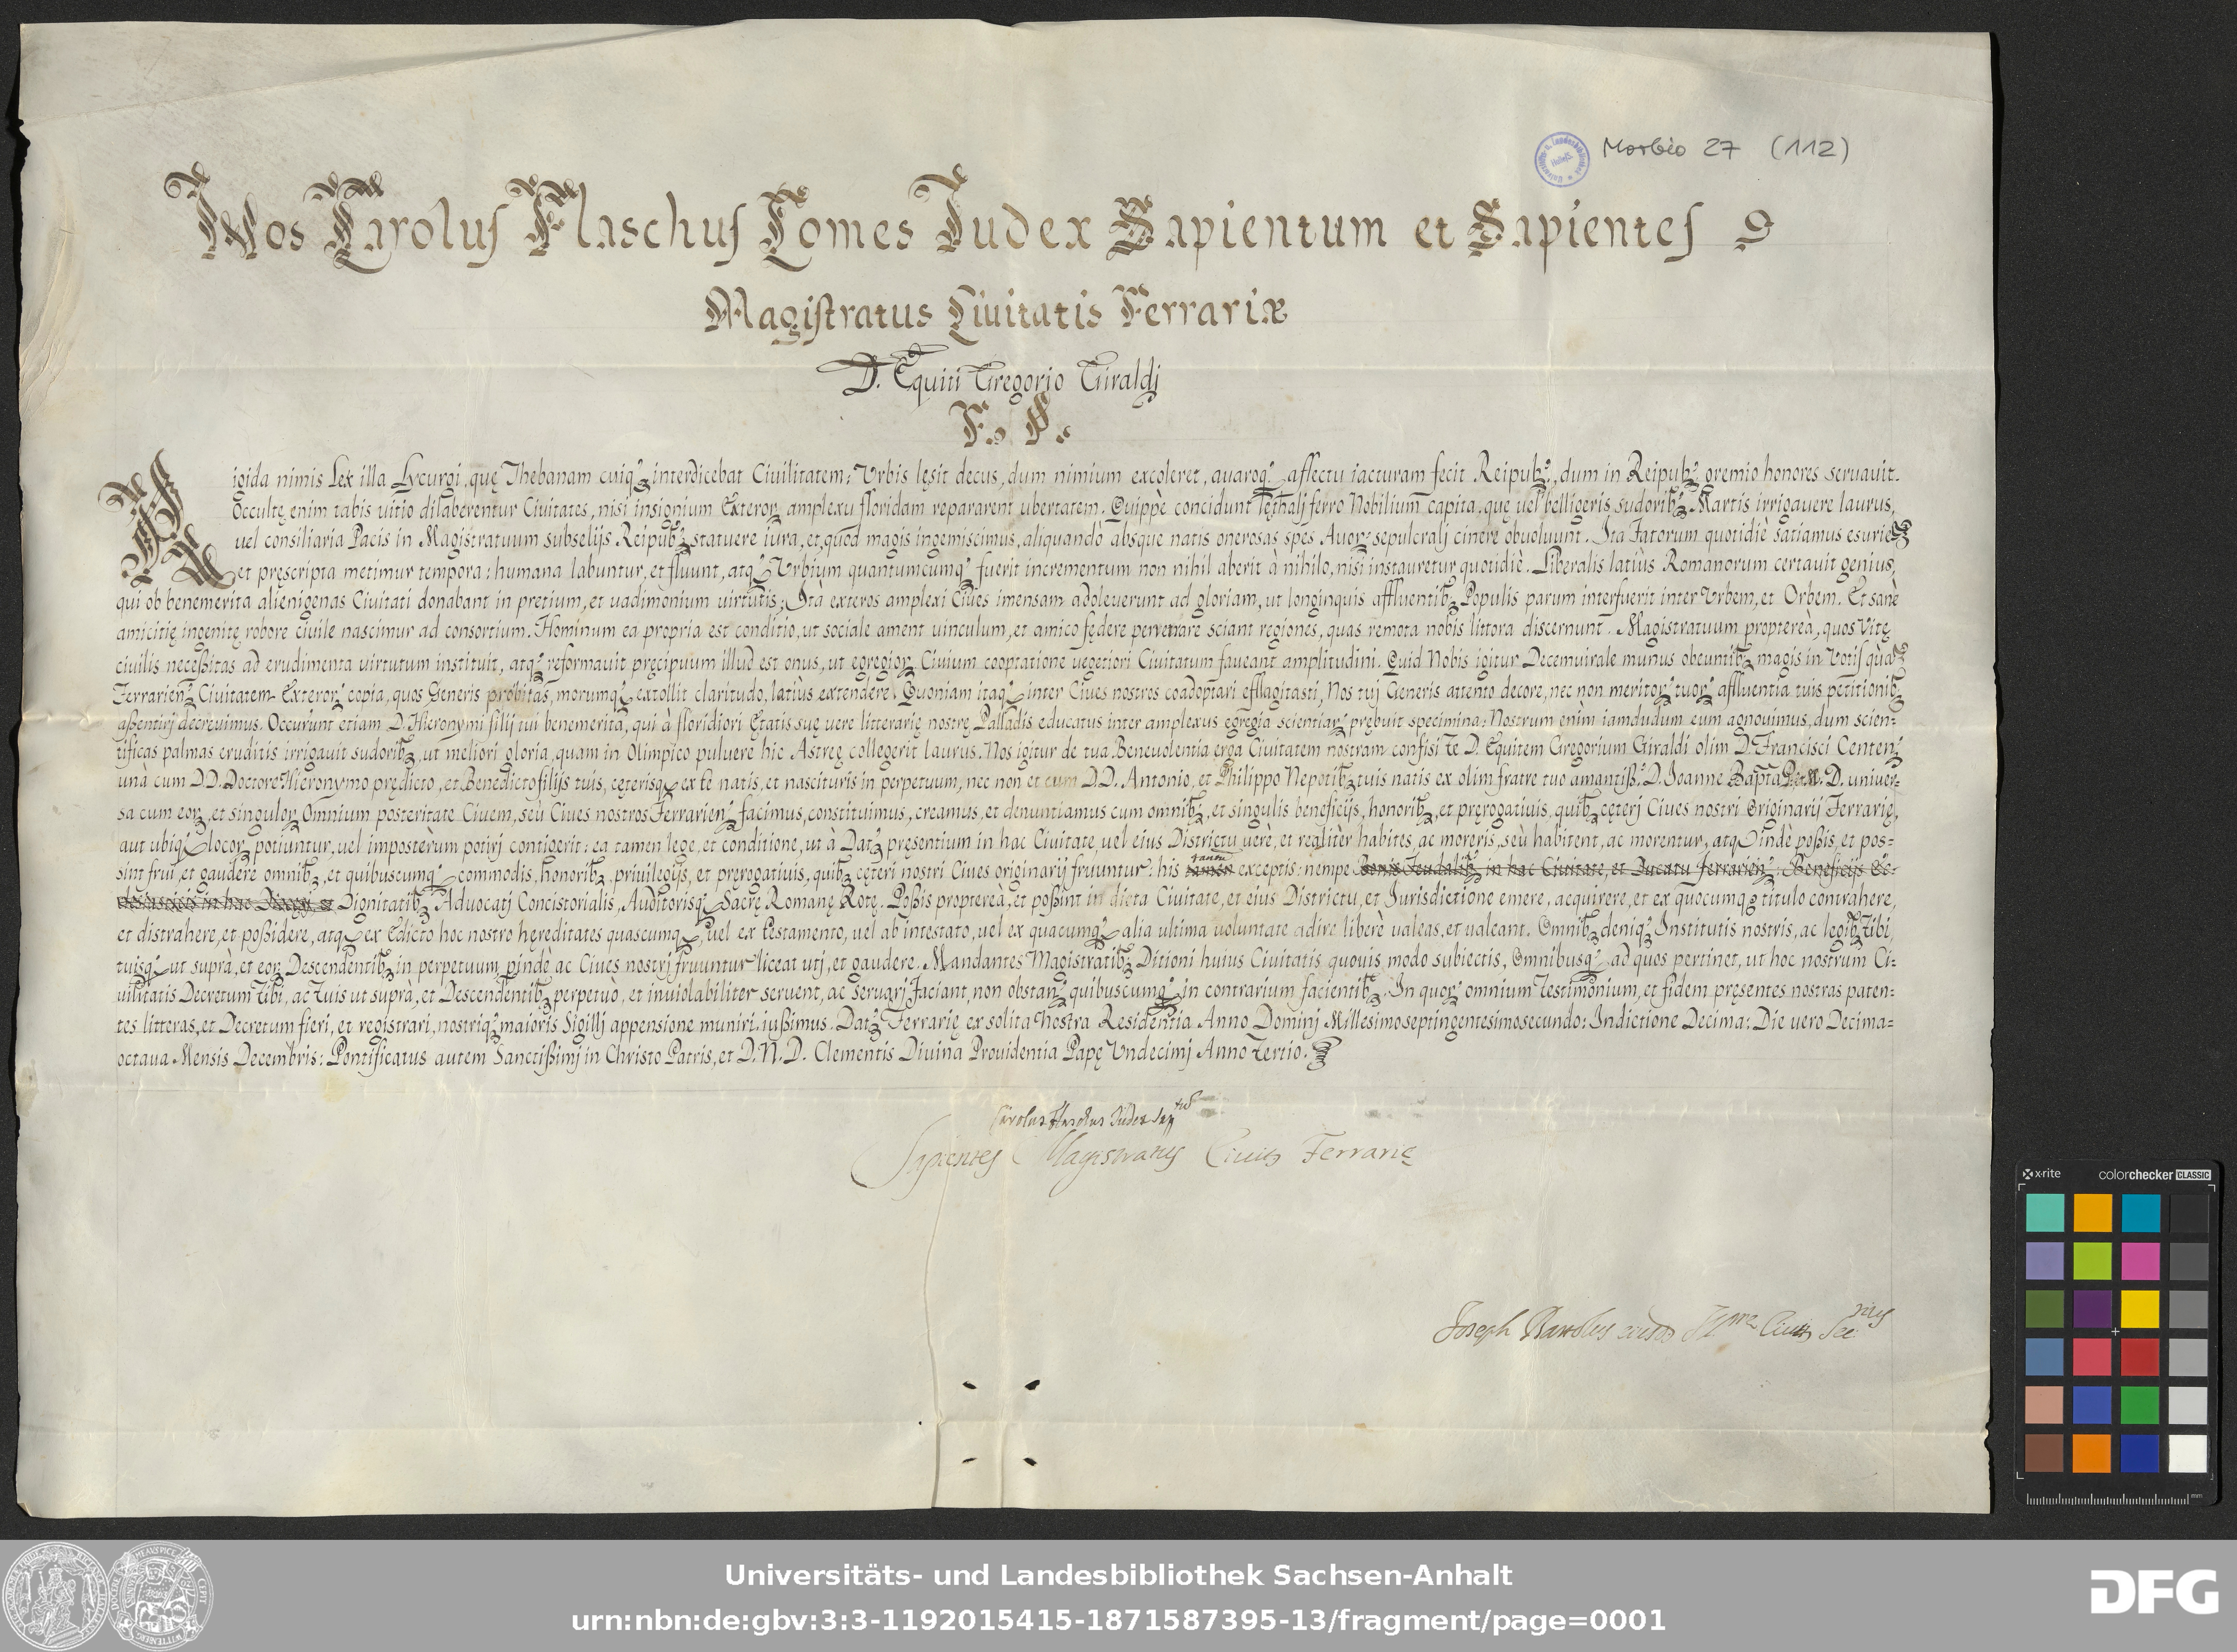 Morbio 27 (112)
Nos Carolus Flaschus Comes Iudex Sapientum et Sapientes
Magistratus Ciuitatis Ferrariæ
D. Equiti Gregorio Giraldj
F. F.
Rigida nimis Lex illa Lycurgi, quę Thebanam cuiq; interdicebat Ciuilitatem: Vrbis lęsit decus, dum nimium excoleret, auaroq; affectu iacturam fecit Reipub:, dum in Reipub: gremio honores seruauit.
Occultę enim tabis uitio dilaberentur Ciuitates, nisi insignium Exteror; amplexu floridam repararent ubertatem. Quippè concidunt lęthalj ferro Nobilium capita, quę uel belligeris sudorib; Martis irrigauere laurus,
uel consiliaria Pacis in Magistratuum subselijs Reipub; statuere iura, et, quod magis ingemiscimus, aliquandò absque natis onerosas spes Auor: sepulcralj cinere obuoluunt. Ita Fatorum quotidiè satiamus esuriē
et pręscripta metimur tempora: humana labuntur, et fluunt, atq; Vrbium quantumcumq; fuerit incrementum non nihil aberit à nihilo, nisi instauretur quotidiè. Liberalis latiùs Romanorum certauit genius,
qui ob benemerita alienigenas Ciuitati donabant in pretium, et uadimonium uirtutis; Ita exteros amplexi Ciues imensam adoleuerunt ad gloriam, ut longinquis affluentib; Populis parum interfuerit inter Vrbem, et Orbem. Et sanè
amicitię ingenitę robore ciuile nascimur ad consortium. Hominum ea propria est conditio, ut sociale ament uinculum, et amico fędere penetrare sciant regiones, quas remota nobis littora discernunt. Magistratuum propterea, quos Vitę
ciuilis neceßitas ad erudimenta uirtutum instituit, atq; reformauit pręcipuum illud est onus, ut egregior; Ciuium cooptatione uegetiori Ciuitatum faueant amplitudini. Quid Nobis igitur Decemuirale munus obeuntib; magis in Votis quā
Ferrarien; Ciuitatem Exteror; copia, quos Generis probitas, morumq; extollit claritudo, latiùs extendere. Quoniam itaq; inter Ciues nostros coadoptari efflagitasti, Nos tuj Generis attento decore, nec non meritor; tuor; affluentia tuis petitionib;
aßentirj decreuimus. Occurunt etiam D. Hieronymi filij tui benemerita, qui à floridiori Ętatis suę uere litterarię nostrę Palladis educatus inter amplexus egregia scientiar; prębuit specimina: Nostrum enim iamdudum eum agnouimus, dum scien=
tificas palmas eruditis irrigauit sudorib; ut meliori gloria, quam in Olimpico puluere hic Astręę collegerit laurus. Nos igitur de tua Beneuolentia erga Ciuitatem nostram confisi te D. Equitem Gregorium Giraldi olim D. Francisci Centen;
unà cum DD. Doctore Hieronymo prędicto, et Benedicto filijs tuis, cęterisq; ex te natis, et nascituris in perpetuum, nec non et cum DD. Antonio, et Philippo Nepotib; tuis natis ex olim fratre tuo amantiß:° D. Ioanne Bapta D. uniuer=
sa cum eor; et singulor; Omnium posteritate Ciuem, seù Ciues nostros Ferrarien; facimus, constituimus, creamus, et denuntiamus cum omnib; et singulis beneficijs, honorib; et pręrogatiuis, quib; cęterj Ciues nostri Originarij Ferrarię,
aut ubiq; locor; potiuntur, uel imposterum potirj contigerit: ea tamen lege, et conditione, ut à Dat; pręsentium in hac Ciuitate, uel eius Districtu uerè, et realitèr habites, ac moreris, seù habitent, ac morentur, atq; indè poßis, et pos=
sint frui, et gaudere omnib; et quibuscumq; commodis, honorib; priuilegijs, et pręrogatiuis, quib; cęteri nostri Ciues originarij fruuntur: his tantū exceptis: nempe Bonis Feudalib; in hac Ciuitate, et Ducatu Ferrarien; Beneficijs Ec=
clesiasticis in hac Diocesi, et Dignitatib; Aduocatj Concistorialis, Auditorisq; Sacrę Romanę Rotę. Poßis propterea, et poßint in dicta Ciuitate, et eius Districtu, et Iurisdictione emere, acquirere, et ex quocumq; titulo contrahere,
et distrahere, et poßidere, atq; ex Edicto hoc nostro hęreditates quascumq; uel ex testamento, uel ab intestato, uel ex quacumq; alia ultima uoluntate adire liberè ualeas, et ualeant. Omnib; deniq; Institutis nostris, ac legib; Tibi,
tuisq; ut suprà, et eor; Descendentib; in perpetuum pindè ac Ciues nostrj fruuntur liceat utj, et gaudere. Mandantes Magistratib; Ditioni huius Ciuitatis quouis modo subiectis, Omnibusq; ad quos pertinet, ut hoc nostrum Ci=
uilitatis Decretum Tibi, ac Tuis ut suprà, et Descendentib; perpetuò, et inuiolabiliter seruent, ac seruarj faciant, non obstan; quibuscumq; in contrarium facientib; In quor; omnium Testimonium, et fidem pręsentes nostras paten=
tes litteras, et Decretum fieri, et registrari, nostriq; maioris Sigillj appensione muniri iußimus. Dat; Ferrarię ex solita nostra Residentia Anno Dominj Millesimoseptingentesimosecundo: Indictione Decima: Die uero Decima=
octaua Mensis Decembris: Pontificatus autem Sanctißimj in Christo Patris, et D. N. D. Clementis Diuina Prouidentia Papę Vndecimj Anno Tertio.
Carolus Flaschus Iudex Sap
Sapientes Magistratus Ciuits Ferrarię
Joseph Ciuits Sec
x-rite colorchecker CLASSIC
Universitäts- und Landesbibliothek Sachsen-Anhalt
urn:nbn:de:gbv:3:3-1192015415-1871587395-13/fragment/page=0001
DFG